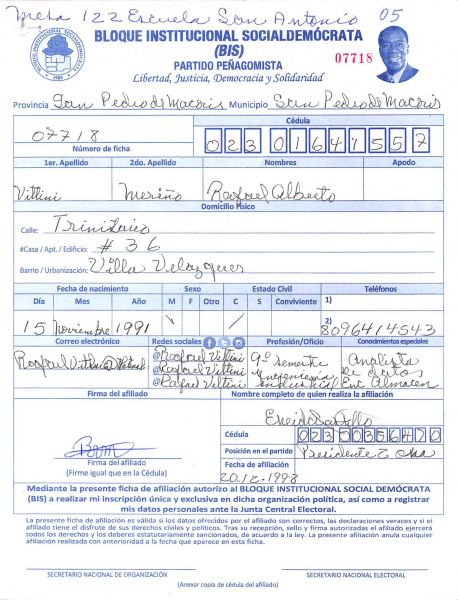 Mesa 122 Escuela San Antonio 05
BLOQUE INSTITUCIONAL SOCIALDEMÓCRATA
(BIS)
07718
PARTIDO PEÑAGOMISTA
Libertad, Justicia, Democracia y Solidaridad
Provincia San Pedro de Macorís Municipio San Pedro de Macorís
Cédula
07718
02301641557
Número de ficha
1er. Apellido 2do. Apellido Nombres Apodo
Vittini Meriño Rafael Alberto
Domicilio Físico
Calle: Trinitaria
#Casa / Apt. / Edificio: # 36
Barrio / Urbanización: Villa Velazques
Fecha de nacimiento Sexo Estado Civil Teléfonos
Día Mes Año M F Otro C S Conviviente 1)
15 Noviembre 1991 2) 8096414543
Correo electrónico Redes sociales Profesión/Oficio Conocimientos especiales
@Rafael Vittini 9º semestre Analista
@Rafael Vittini Ingenieria de datos
@Rafael Vittini industrial Enc. Almacen
Firma del afiliado Nombre completo de quien realiza la afiliación
Cédula 02300356470
Posición en el partido Presidente Zona
Firma del afiliado
(Firme igual que en la Cédula)
Fecha de afiliación
20.12-1998
Mediante la presente ficha de afiliación autorizo al BLOQUE INSTITUCIONAL SOCIAL DEMÓCRATA
(BIS) a realizar mi inscripción única y exclusiva en dicha organización política, así como a registrar
mis datos personales ante la Junta Central Electoral.
La presente ficha de afiliación es válida si los datos ofrecidos por el afiliado son correctos, las declaraciones veraces y si el
afiliado tiene el disfrute de sus derechos civiles y políticos. Tras su recepción, sello y firma autorizadas el afiliado ejercerá
todos los derechos y los deberes estatutariamente sancionados, de acuerdo a la ley. La presente afiliación anula cualquier
afiliación realizada con anterioridad a la fecha que aparece en esta ficha.
SECRETARIO NACIONAL DE ORGANIZACIÓN SECRETARIO NACIONAL ELECTORAL
(Anexar copia de cédula del afiliado)